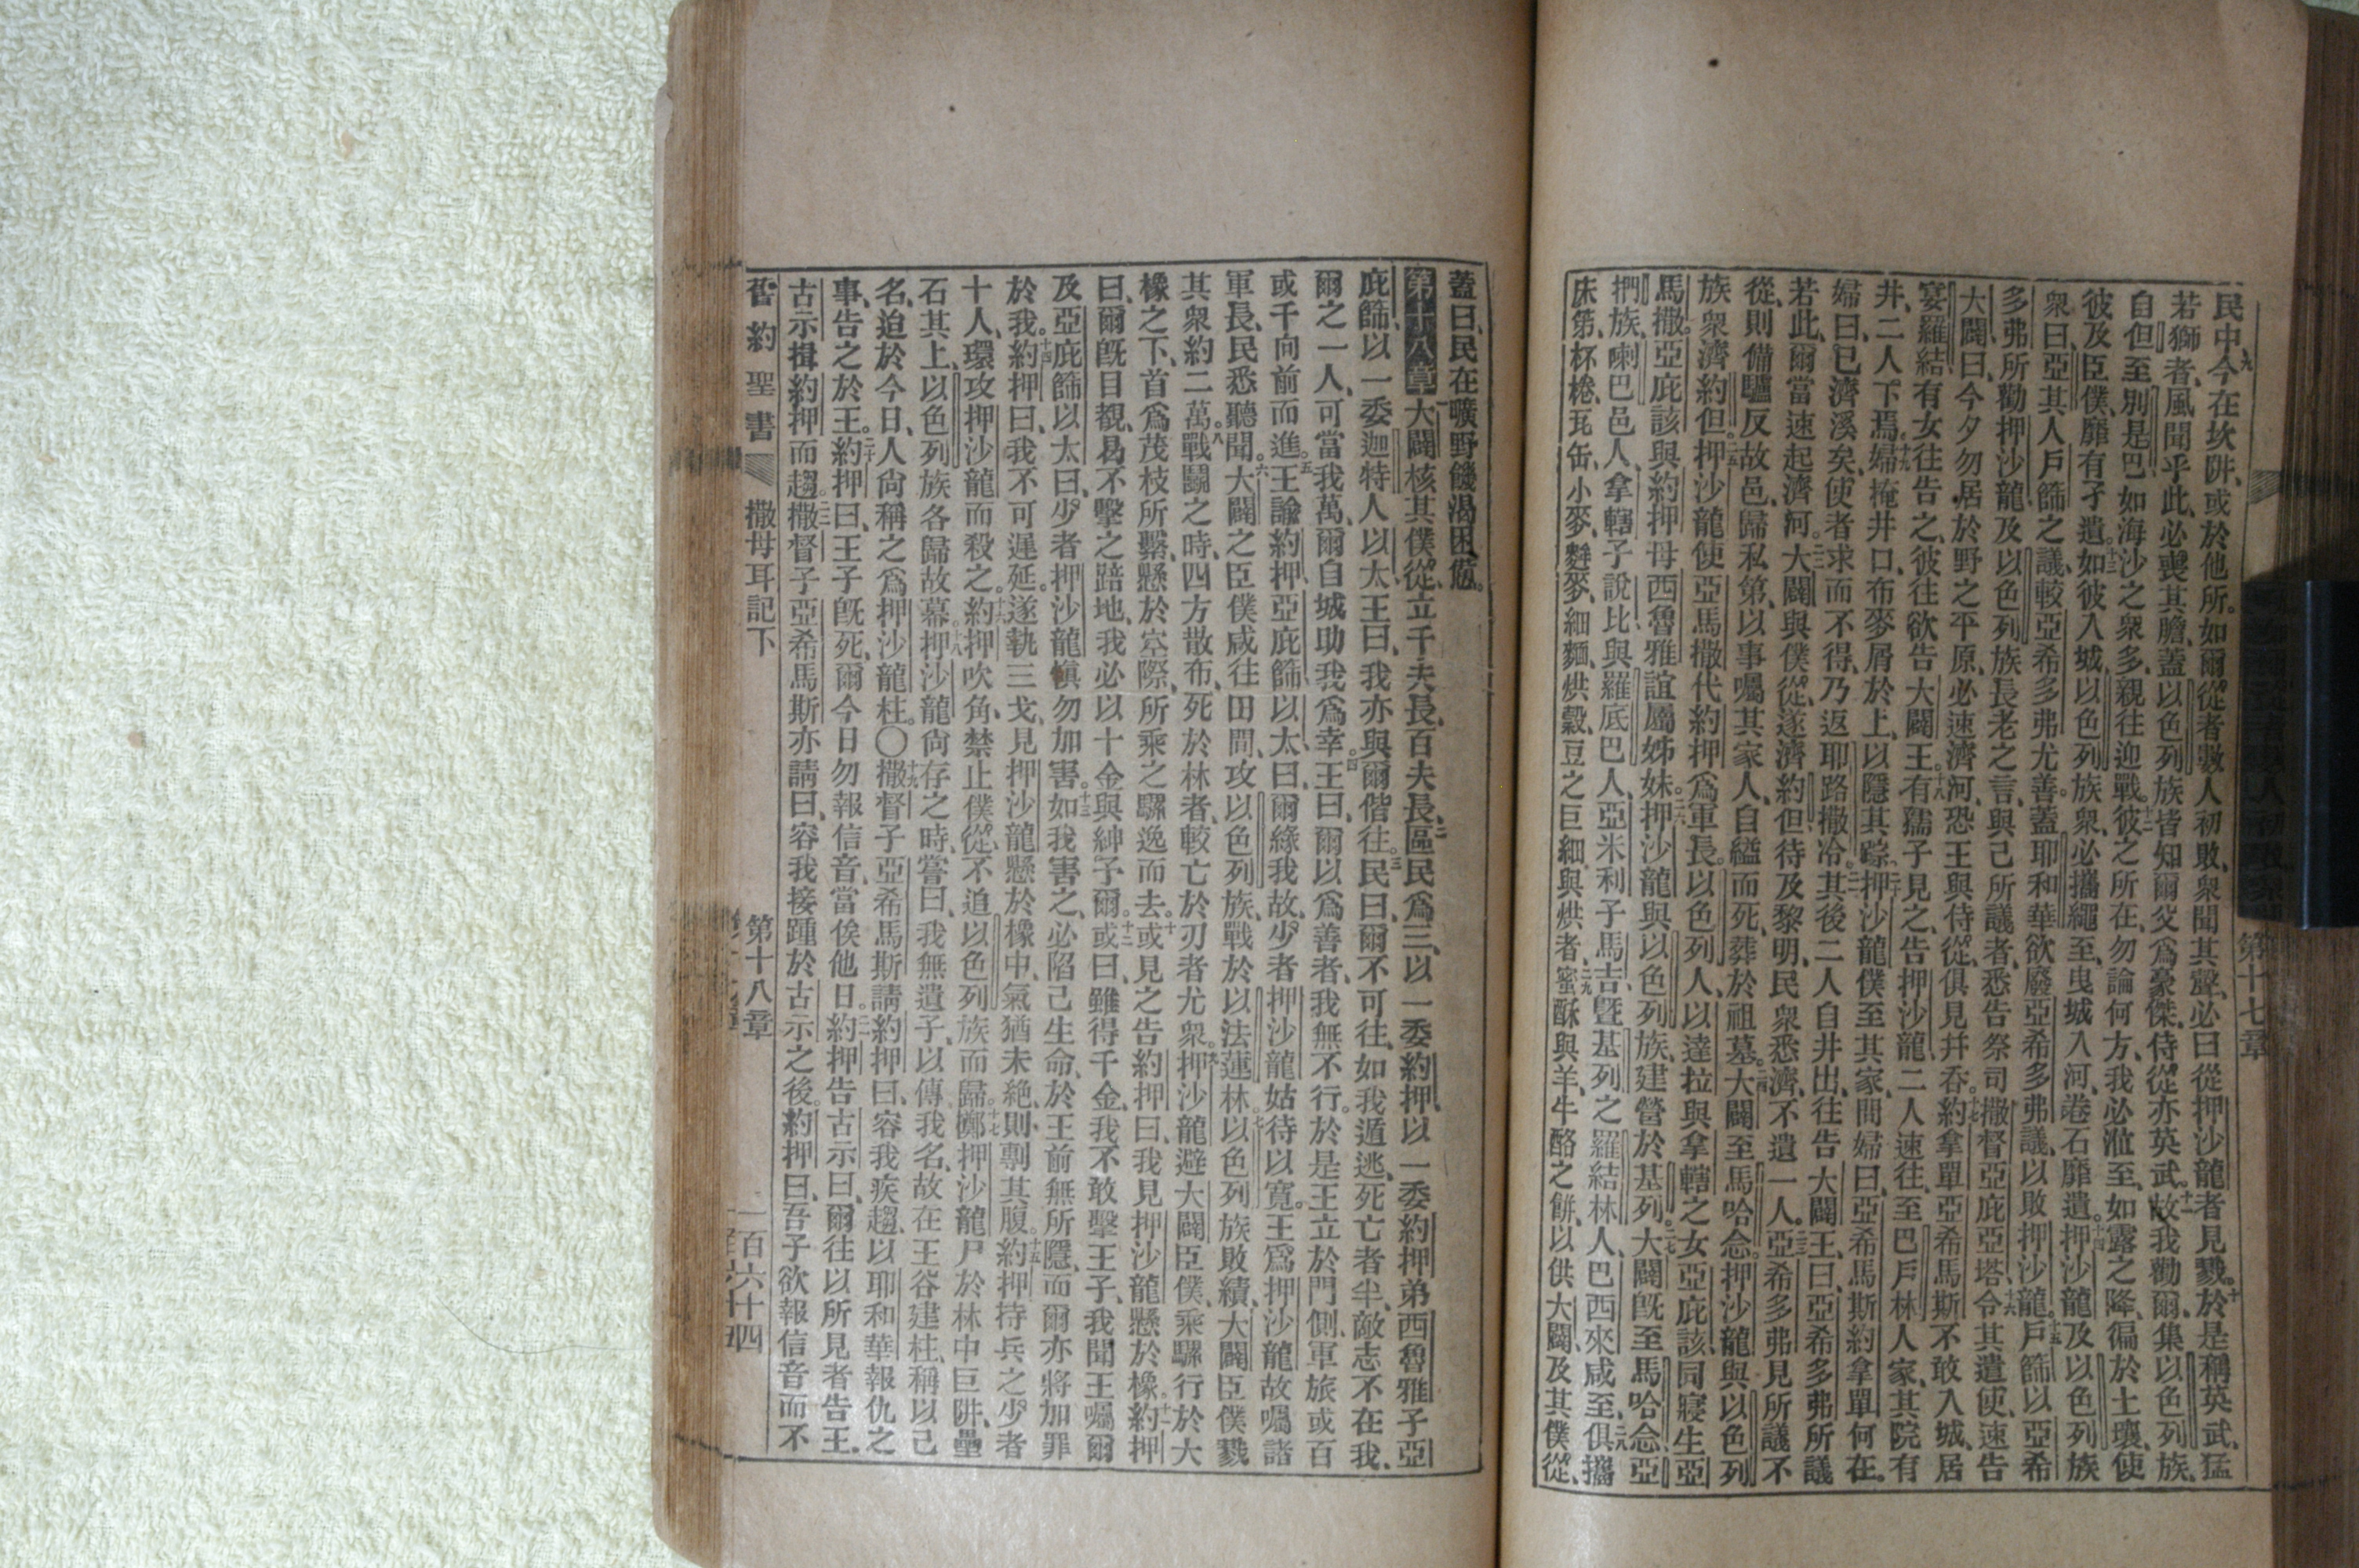 民中、九今在坎阱、或於他所。如爾從者數人初敗、衆聞其聲、必曰從押沙龍者見戮。十於是稱英武、猛
若獅者、風聞乎此、必喪其膽、蓋以色列族皆知爾父爲豪傑、侍從亦英武。十一故我勸爾、集以色列族、
自但至別是巴、如海沙之衆多、親往迎戰。十二彼之所在、勿論何方、我必涖至、如露之降、徧於土壤、使
彼及臣僕、靡有孑遺。十三如彼入城、以色列族衆、必攜繩至、曳城入河、卷石靡遺。十四押沙龍及以色列族
衆曰、亞其人戶篩之議、較亞希多弗尤善。蓋耶和華欲廢亞希多弗議、以敗押沙龍。十五戶篩以亞希
多弗所勸押沙龍、及以色列族長老之言、與己所議者、悉告祭司撒督亞庇亞塔、十六令其遣使、速告
大闢曰、今夕勿居於野之平原、必速濟河、恐王與侍從、俱見幷吞。十七約拿單亞希馬斯不敢入城、居
宴羅結、有女往告之、彼往欲告大闢王。十八有孺子見之、告押沙龍、二人速往、至巴戶林人家、其院有
井、二人下焉、十九婦掩井口、布麥屑於上、以隱其踪。二十押沙龍僕至其家、問婦曰、亞希馬斯約拿單何在。
婦曰、已濟溪矣、使者求而不得、乃返耶路撒冷。二一其後二人自井出、往告大闢王、曰、亞希多弗所議
若此、爾當速起濟河。二二大闢與僕從、遂濟約但、待及黎明、民衆悉濟、不遺一人。二三亞希多弗見所議不
從、則備驢反故邑、歸私第、以事囑其家人、自縊而死、葬於祖墓。二四大闢至馬哈念。押沙龍與以色列
族衆濟約但。二五押沙龍使亞馬撒代約押爲軍長。以色列人、以達拉與拿轄之女亞庇該、同寢生亞
馬撒。亞庇該與約押母西魯雅誼屬姊妹。二六押沙龍與以色列族、建營於基列。二七大闢旣至馬哈念、亞
捫族、喇巴邑人、拿轄子說比、與羅底巴人、亞米利子馬吉、曁基列之羅結林人、巴西來咸至、二八俱攜
床笫、杯棬、瓦缶、小麥、麰麥、細麵、烘穀、豆之巨細、與烘者、二九蜜酥與羊、牛酪之餅、以供大闢、及其僕從、
第十七章
蓋曰、民在曠野、饑渴困憊。
第十八章 大闢核其僕從、立千夫長、百夫長、二區民爲三、以一委約押、以一委約押弟西魯雅子亞
庇篩、以一委迦特人以太、王曰、我亦與爾偕往。三民曰、爾不可往、如我遁逃、死亡者半、敵志不在我、
爾之一人、可當我萬、爾自城助我爲幸。四王曰、爾以爲善者、我無不行。於是王立於門側、軍旅或百
或千、向前而進。五王諭約押、亞庇篩、以太曰、爾緣我故、少者押沙龍、姑待以寬。王爲押沙龍故囑諸
軍長、民悉聽聞。六大闢之臣僕、咸往田間、攻以色列族、戰於以法蓮林。七以色列族敗績、大闢臣僕戮
其衆約二萬。八戰鬭之時、四方散布、死於林者、較亡於刃者尤衆。九押沙龍避大闢臣僕、乘騾行於大
橡之下、首爲茂枝所繫、懸於空際、所乘之騾逸而去。十或見之、告約押曰、我見押沙龍懸於橡。十一約押
曰、爾旣目覩、曷不擊之踣地、我必以十金與紳予爾。十二或曰、雖得千金、我不敢擊王子、我聞王囑爾
及亞庇篩以太曰、少者押沙龍、愼勿加害。十三如我害之、必陷己生命、於王前無所隱、而爾亦將加罪
於我。十四約押曰、我不可遲延。遂執三戈、見押沙龍懸於橡中、氣猶未絕、則剚其腹。十五約押持兵之少者
十人、環攻押沙龍而殺之。十六約押吹角、禁止僕從、不追以色列族而歸。十七擲押沙龍尸於林中巨阱、壘
石其上、以色列族各歸故幕。十八押沙龍尙存之時、嘗曰、我無遺子、以傳我名、故在王谷建柱、稱以己
名、迫於今日、人尙稱之爲押沙龍柱。〇十九撒督子亞希馬斯請約押曰、容我疾趨、以耶和華報仇之
事、告之於王。二十約押曰、王子旣死、爾今日勿報信音、當俟他日。二一約押告古示曰、爾往以所見者告王。
古示揖約押而趨。二二撒督子亞希馬斯亦請曰、容我接踵於古示之後。約押曰、吾子欲報信音而不
舊約聖書 撒母耳記下 第十八章 一百六十四